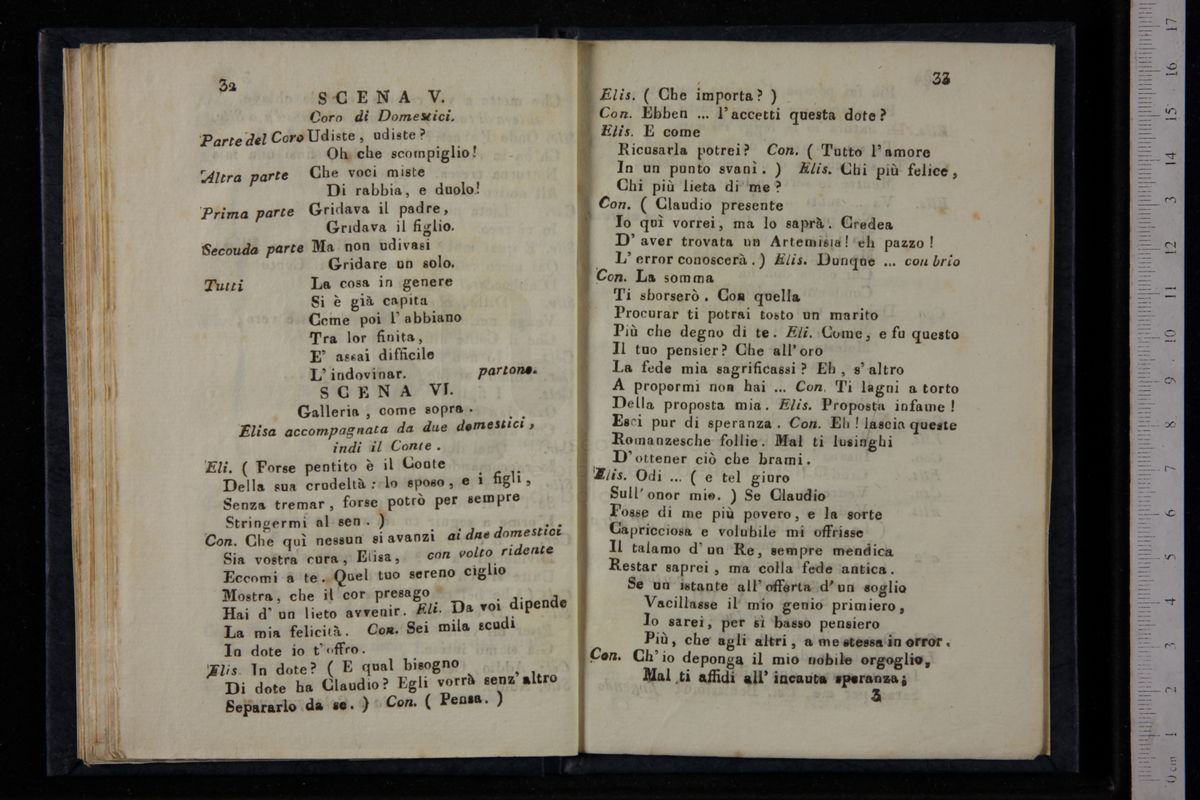 32
SCENA V.
Coro di Domestici.
Parte del Coro Udiste, udiste?
Oh che scompiglio!
Altra parte Che voci miste
Di rabbia, e duolo!
Prima parte Gridava il padre,
Gridava il figlio.
Secouda parte Ma non udivasi
Gridare un solo.
Tutti La cosa in genere
Si è già capita
Come poi l'abbiano
Tra lor finita,
E' assai difficile
L'indovinar. partono.
SCENA VI.
Galleria, come sopra.
Elisa accompagnata da due domestici,
indi il Conte.
Eli. ( Forse pentito è il Conte
Della sua crudeltà: lo sposo, e i figli,
Senza tremar, forse potrò per sempre
Stringermi al sen. )
Con. Che quì nessun si avanzi ai due domestici
Sia vostra cura, Elisa, con volto ridente
Eccomi a te. Quel tuo sereno ciglio
Mostra, che il cor presago
Hai d'un lieto avvenir. Eli. Da voi dipende
La mia felicità. Con. Sei mila scudi
In dote io t'offro.
Elis. In dote? ( E qual bisogno
Di dote ha Claudio? Egli vorrà senz'altro
Separarlo da se. ) Con. ( Pensa. )
33
Elis. ( Che importa? )
Con. Ebben ... l'accetti questa dote?
Elis. E come
Ricusarla potrei? Con. ( Tutto l'amore
In un punto svanì. ) Elis. Chi più felice,
Chi più lieta di me?
Con. ( Claudio presente
Io quì vorrei, ma lo saprà. Credea
D'aver trovata un Artemisia! eh pazzo!
L'error conoscerà. ) Elis. Dunque ... con brio
Con. La somma
Ti sborserò. Con quella
Procurar ti potrai tosto un marito
Più che degno di te. Eli. Come, e fu questo
Il tuo pensier? Che all'oro
La fede mia sagrificassi? Eh, s'altro
A propormi non hai ... Con. Ti lagni a torto
Della proposta mia. Elis. Proposta infame!
Esci pur di speranza. Con. Eh! lascia queste
Romanzesche follie. Mal ti lusinghi
D'ottener ciò che brami.
Elis. Odi ... ( e tel giuro
Sull'onor mio. ) Se Claudio
Fosse di me più povero, e la sorte
Capricciosa e volubile mi offrisse
Il talamo d'un Re, sempre mendica
Restar saprei, ma colla fede antica.
Se un istante all'offerta d'un soglio
Vacillasse il mio genio primiero,
Io sarei, per sì basso pensiero
Più, che agli altri, a me stessa in orror.
Con. Ch'io deponga il mio nobile orgoglio,
Mal ti affidi all'incauta speranza;
3